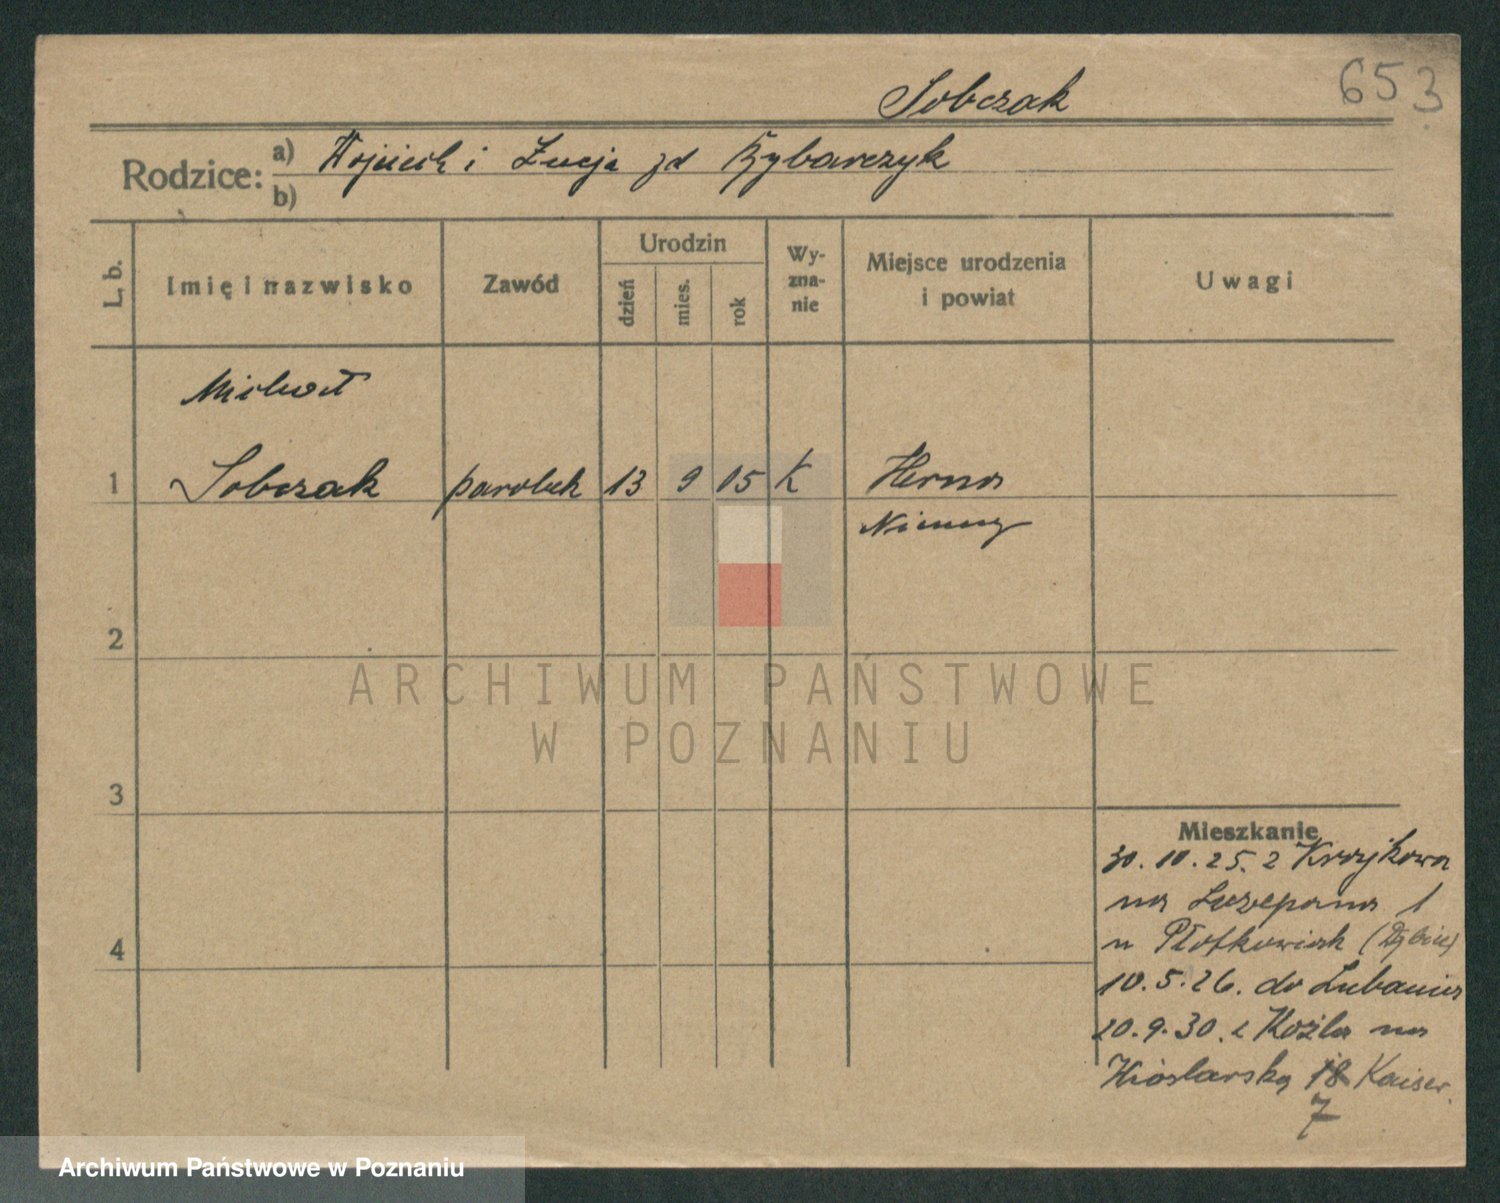 Sobczak
653
Rodzice: a) Wojciech i Łucja zd Rybarczyk
b)
L. b.
Imię i nazwisko
Zawód
Urodzin
dzień
mies.
rok
Wy-
zna-
nie
Miejsce urodzenia
i powiat
Uwagi
Michał
1 Sobczak parobek 13 9 15 K Herna
Niemcy
2
3
4
Mieszkanie
30.10.25. z Krzyżkowa
na Szczepana 1
u Płotkowiak (Dębiec)
10.5.26. do Lubania
20.9.30. z Koźla na
Wioślarską 18 Kaiser.
7
ARCHIWUM PAŃSTWOWE
W POZNANIU
Archiwum Państwowe w Poznaniu